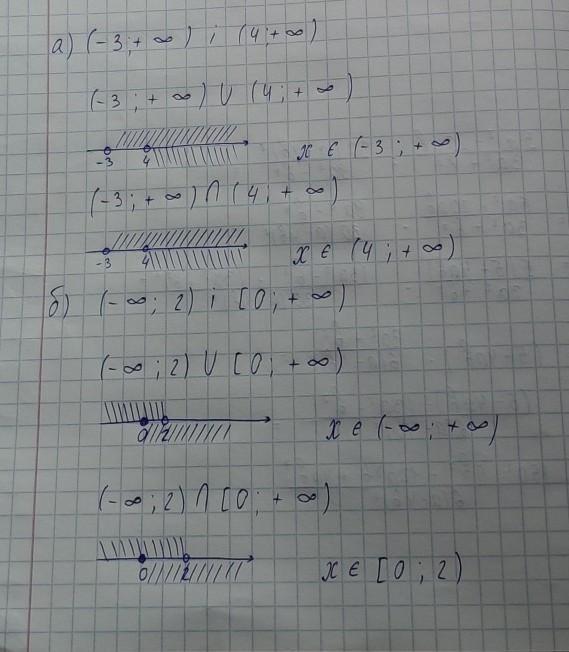 а) (-3;+∞) і (4;+∞)
(-3;+∞) U (4;+∞)
-3 4 x ∈ (-3;+∞)
(-3;+∞) ∩ (4;+∞)
-3 4 x ∈ (4;+∞)
б) (-∞;2) і [0;+∞)
(-∞;2) U [0;+∞)
0 2 x ∈ (-∞;+∞)
(-∞;2) ∩ [0;+∞)
0 2 x ∈ [0;2)